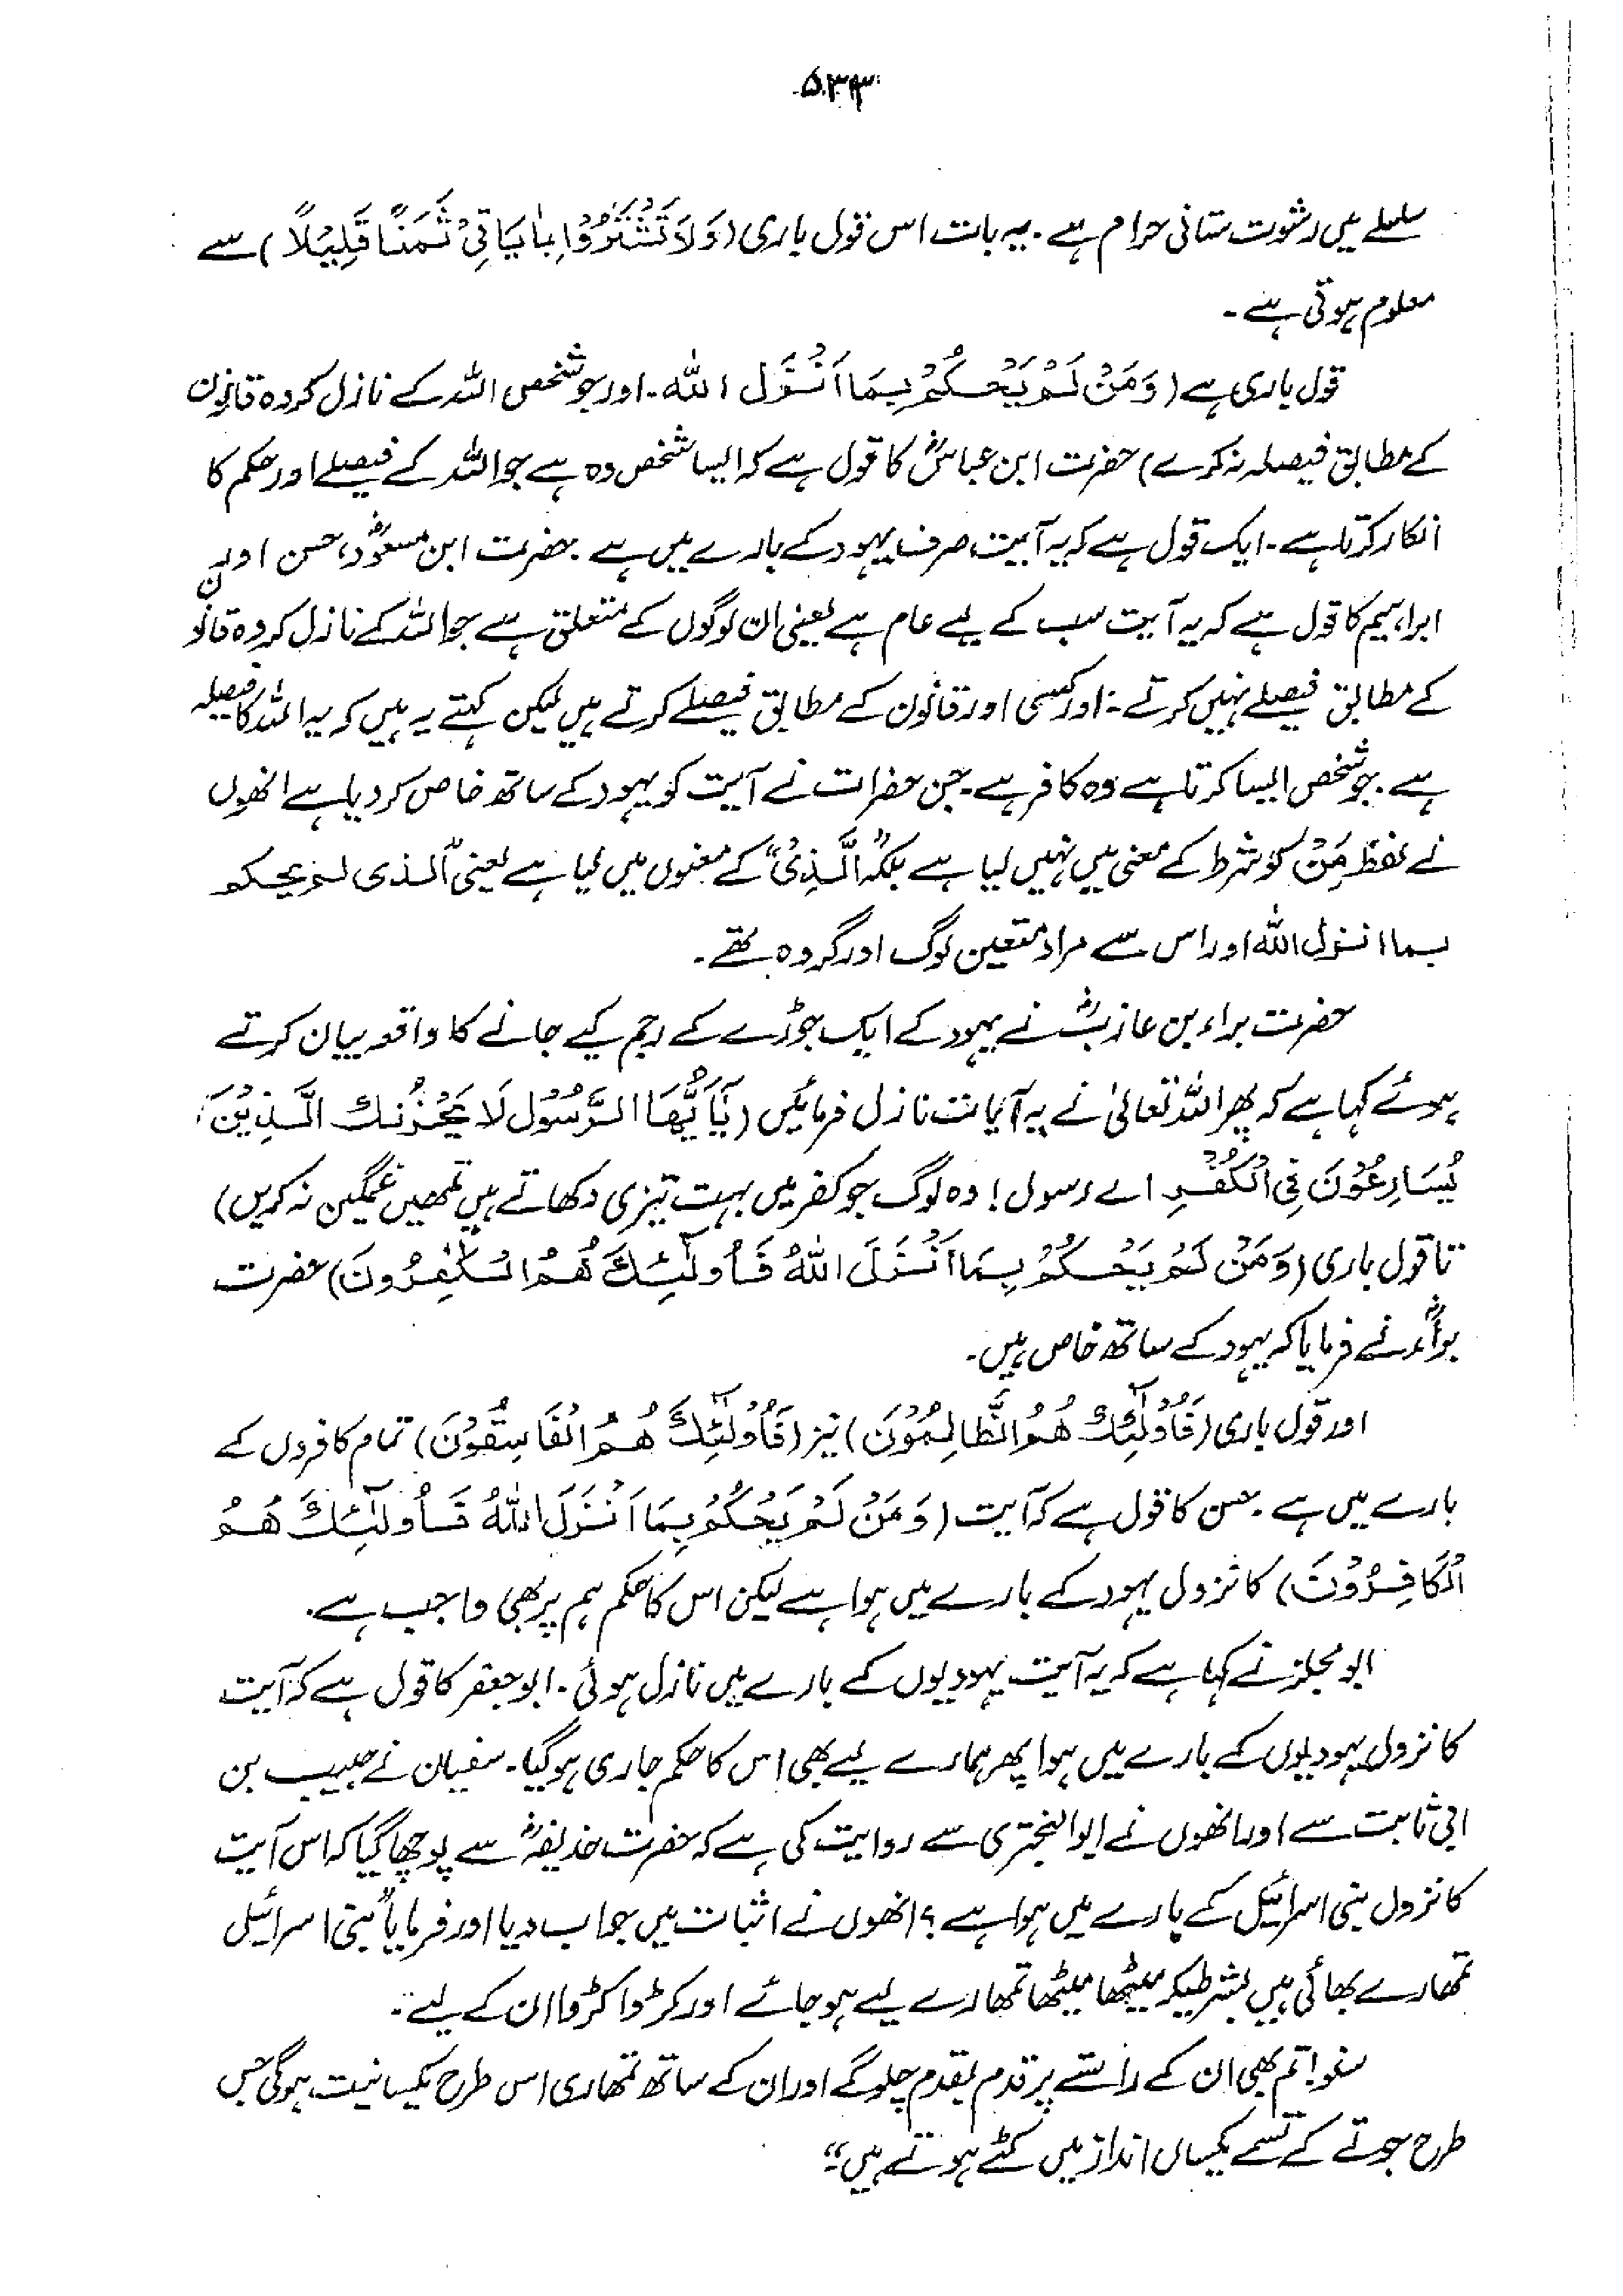 ۵۳۳
سلسلے میں رشوت ستانی حرام ہے۔ یہ بات اس قول باری (وَلَا تَشْتَرُوْا بِاٰيَاتِيْ ثَمَنًا قَلِيْلًا) سے
معلوم ہوتی ہے۔
قول باری ہے (وَمَنْ لَمْ يَحْكُمْ بِمَا اَنْزَلَ اللّٰه۔ اور جو شخص اللہ کے نازل کردہ قانون
کے مطابق فیصلہ نہ کرے) حضرت ابن عباسؓ کا قول ہے کہ ایسا شخص وہ ہے جو اللہ کے فیصلے اور حکم کا
انکار کرتا ہے۔ ایک قول ہے کہ یہ آیت صرف یہود کے بارے میں ہے۔ حضرت ابن مسعودؓ، حسن اور
ابراہیم کا قول ہے کہ یہ آیت سب کے لیے عام ہے یعنی ان لوگوں کے متعلق ہے جو اللہ کے نازل کردہ قانون
کے مطابق فیصلے نہیں کرتے۔ اور کسی اور قانون کے مطابق فیصلے کرتے ہیں لیکن کہتے یہ ہیں کہ یہ اللہ کا فیصلہ
ہے۔ جو شخص ایسا کرتا ہے وہ کافر ہے۔ جن حضرات نے آیت کو یہود کے ساتھ خاص کر دیا ہے انھوں
نے لفظ مَنْ کو شرط کے معنی میں نہیں لیا ہے بلکہ "الَّذِیْ" کے معنوں میں لیا ہے یعنی "الذی لم یحکم
بما انزل اللّٰه اور اس سے مراد متعین لوگ اور گروہ تھے۔
حضرت براء بن عازبؓ نے یہود کے ایک جوڑے کے رجم کیے جانے کا واقعہ بیان کرتے
ہوئے کہا ہے کہ پھر اللہ تعالیٰ نے یہ آیات نازل فرمائیں (يَآ اَيُّهَا الرَّسُوْل لَا يَحْزُنك الَّذِيْنَ
يُسَارِعُوْنَ فِي الْكُفْرِ اے رسول! وہ لوگ جو کفر میں بہت تیزی دکھاتے ہیں تمھیں غمگین نہ کریں)
تا قول باری (وَمَنْ لَمْ يَحْكُمْ بِمَا اَنْزَلَ اللّٰهُ فَاُولٰٓئِكَ هُمُ الْكٰفِرُونَ) حضرت
براءؓ نے فرمایا کہ یہود کے ساتھ خاص ہیں۔
اور قول باری (فَاُولٰٓئِكَ هُمُ الظَّالِمُوْنَ) نیز (فَاُولٰٓئِكَ هُمُ الْفَاسِقُوْنَ) تمام کافروں کے
بارے میں ہے۔ حسن کا قول ہے کہ آیت (وَمَنْ لَمْ يَحْكُمْ بِمَا اَنْزَلَ اللّٰهُ فَاُولٰٓئِكَ هُمُ
الْكَافِرُوْنَ) کا نزول یہود کے بارے میں ہوا ہے لیکن اس کا حکم ہم پر بھی واجب ہے۔
ابو مجلز نے کہا ہے کہ یہ آیت یہودیوں کے بارے میں نازل ہوئی۔ ابو جعفر کا قول ہے کہ آیت
کا نزول یہودیوں کے بارے میں ہوا پھر ہمارے لیے بھی اس کا حکم جاری ہو گیا۔ سفیان نے حبیب بن
ابی ثابت سے اور انھوں نے ابو البختری سے روایت کی ہے کہ حضرت حذیفہؓ سے پوچھا گیا کہ اس آیت
کا نزول بنی اسرائیل کے بارے میں ہوا ہے؟ انھوں نے اثبات میں جواب دیا اور فرمایا "بنی اسرائیل
تمھارے بھائی ہیں بشرطیکہ میٹھا میٹھا تمھارے لیے ہو جائے اور کڑوا کڑوا ان کے لیے۔
سنو! تم بھی ان کے راستے پر قدم بقدم چلو گے اور ان کے ساتھ تمھاری اس طرح یکسانیت ہوگی جس
طرح جوتے کے تسمے یکساں انداز میں کٹے ہوتے ہیں"۔